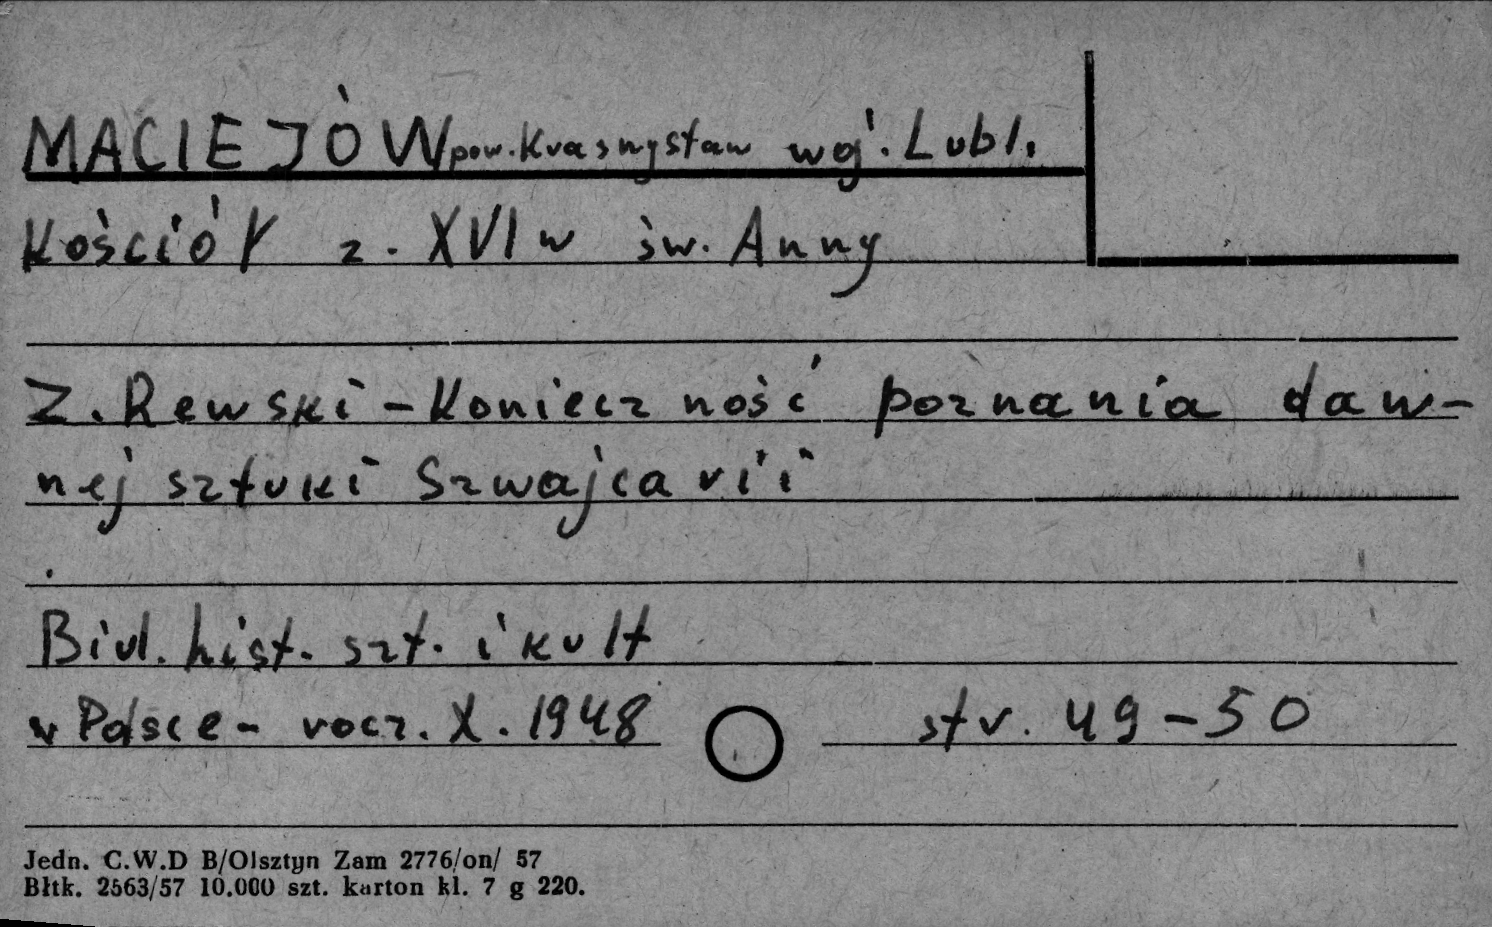 MACIEJÓW pow. Krasnystaw woj. Lubl.
Kościół z. XVI w św. Anny
Z. Rewski – Konieczność poznania daw-
nej sztuki Szwajcarii
Biul. hist. szt. i kult
w Polsce – rocz. X. 1948 str. 49–50
Jedn. C.W.D B/Olsztyn Zam 2776/on/ 57
Błtk. 2563/57 10.000 szt. karton kl. 7 g 220.